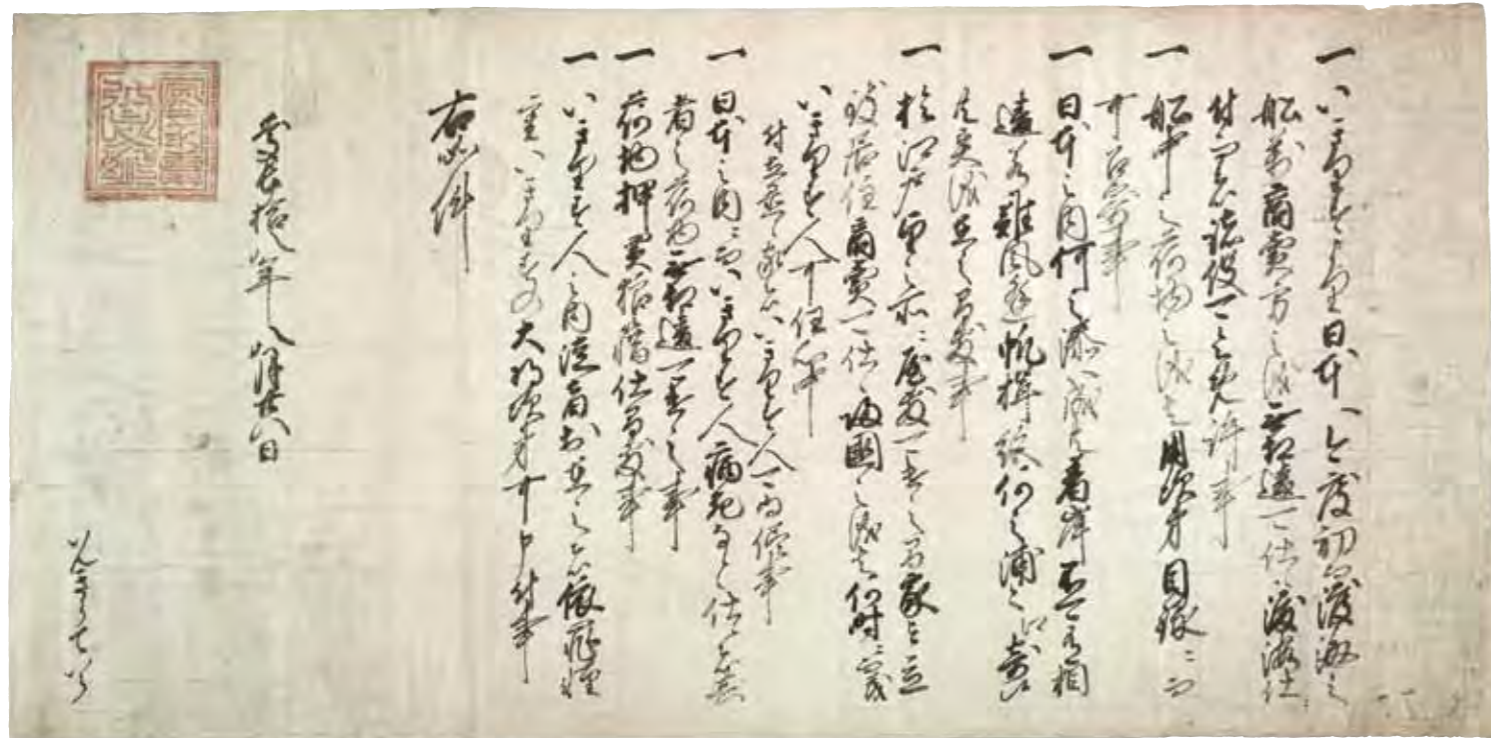 一 いきりすより日本へ今度初而渡海之
船萬商賣方之儀無相違可仕候渡海仕
付而者諸役可令免許事
一 船中之荷物之儀者用次第目録ニ而
可召寄事
一 日本之内何之湊へ成共着岸不可有相
違若難風逢帆楫絶何之浦々へ寄候
共異儀有之間敷事
一 於江戸望之所ニ屋敷可遣之間家を立
致居住商賣可仕候帰國之儀者何時ニ而茂
いきりす人可任心中
付立置候家者いきりす人可為儘事
一 日本之内ニ而いきりす人病死なと仕候者其
者之荷物無相違可遣之事
一 荷物押買狼藉仕間敷事
一 いきりす人之内徒者於有之者依罪軽
重いきりすの大将次第可申付事
右如件
慶長拾八年八月廿八日
いんきらていら